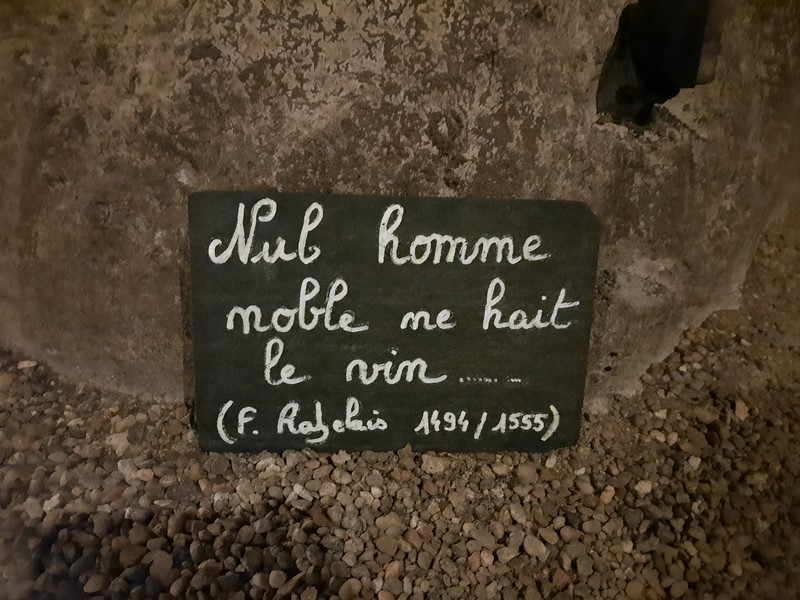 Nul homme
noble ne hait
le vin........
(F. Rabelais 1494/1555)